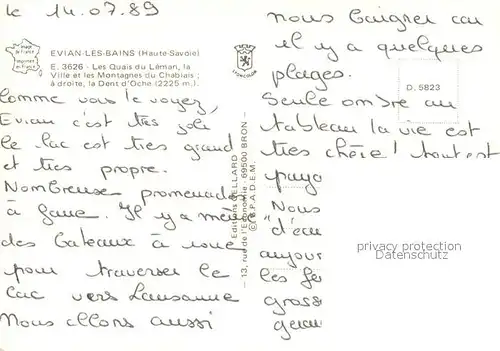 le 14.07.89
EVIAN-LES-BAINS (Haute-Savoie)
E. 3626 - Les Quais du Léman, la
Ville et les Montagnes du Chablais ;
à droite, la Dent d'Oche (2225 m.).
Comme vous le voyez,
Evian c'est très joli
le lac est très grand
et très propre.
Nombreuse promenades
à faire. Il y a même
des bateaux à roue
pour traverser le
lac vers Lausanne
Nous allons aussi
Editions CELLARD
— 13, rue de l'Economie - 69500 BRON —
S.P.A.D.E.M.
LYONCOLOR
nous baigner car
il y a quelques
plages.
Seule ombre au
tableau la vie est
très chère! tout est
paya
Nous
"d'eau
aujour
les fe
gross
D. 5823
privacy protection
Datenschutz